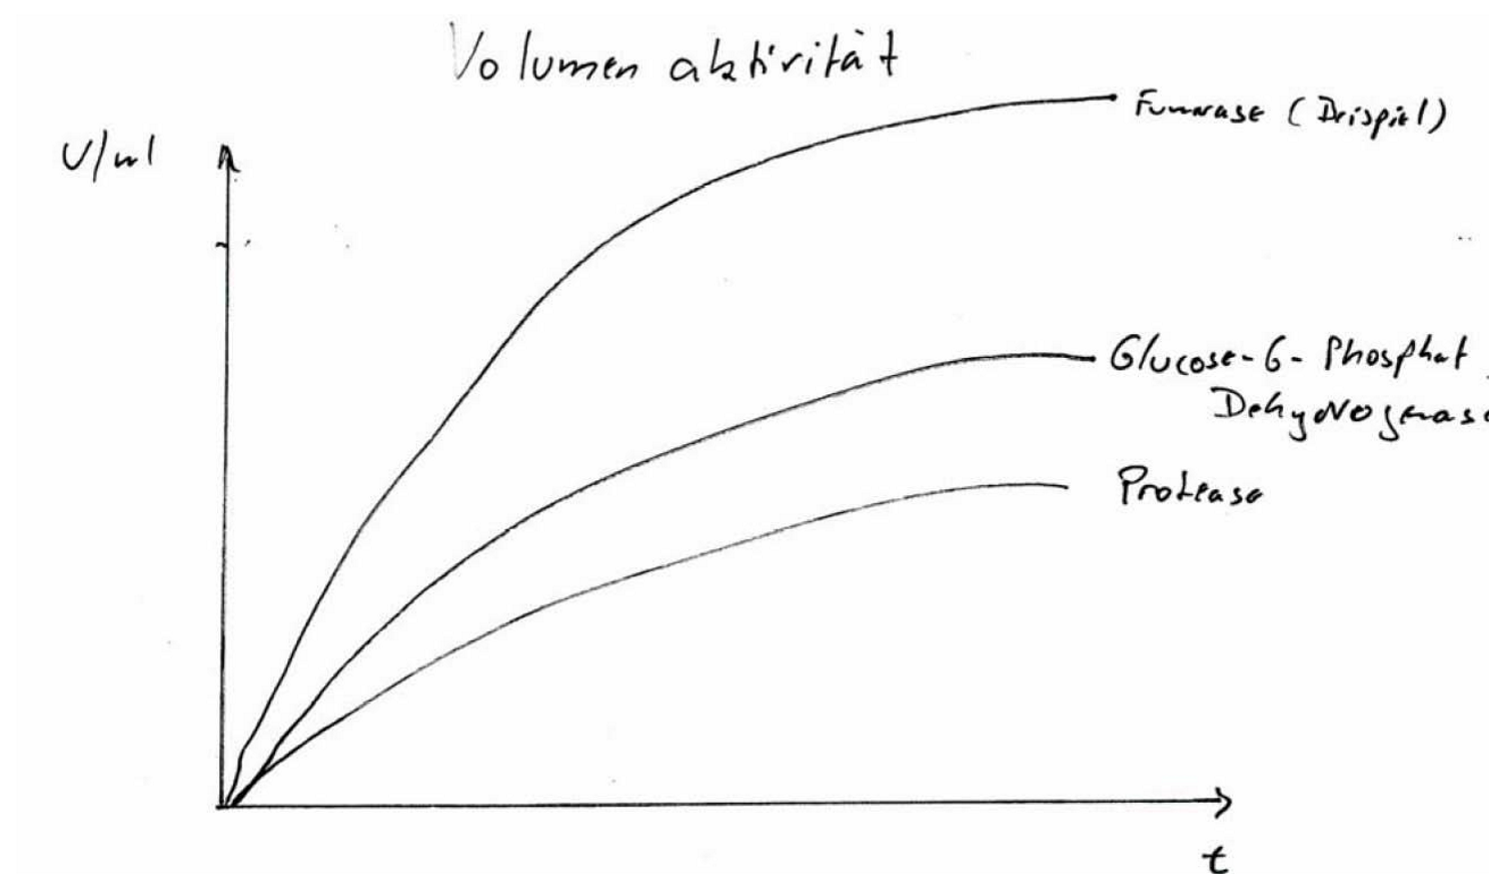 Volumenaktivität
Fumrase (Beispiel)
U/ml
Glucose-6-Phosphat
Dehydrogenase
Protease
t